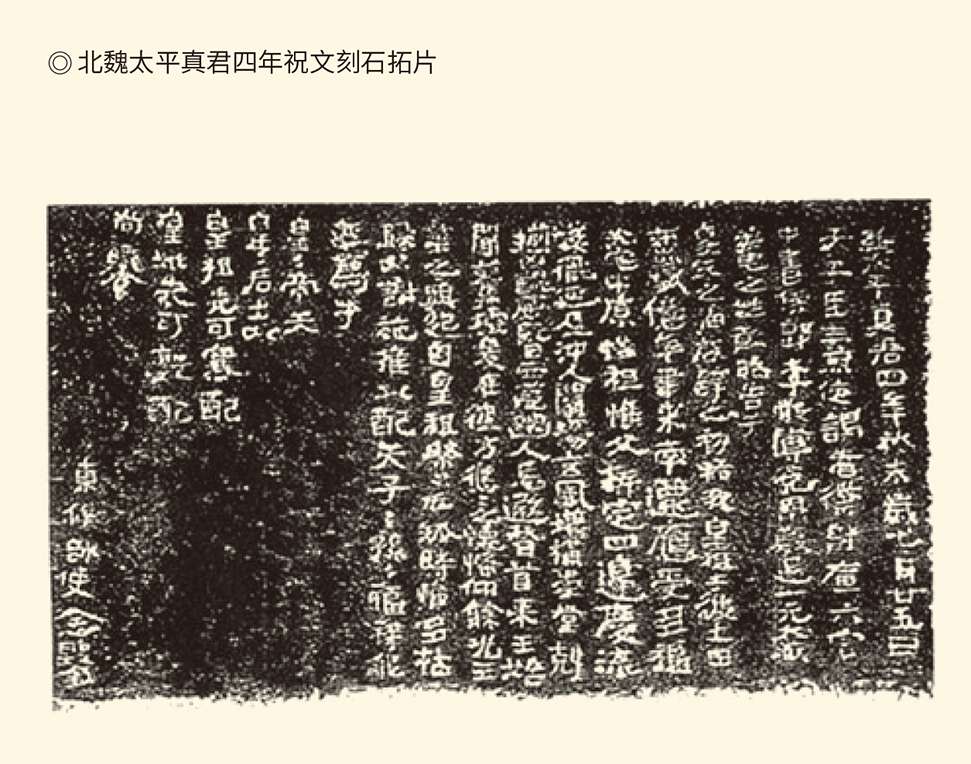 ◎ 北魏太平真君四年祝文刻石拓片
維太平真君四年癸未歲七月廿五日
天子臣燾使謁者僕射庫六官
中書侍郎李敞傅㝹用駿足一元大武
柔毛之牲敢昭告于
皇天之神啟辟之初祐我皇祖于彼土田
歷載億年聿來南遷應受多福
光宅中原惟祖惟父拓定四邊慶流
後胤延及沖人闡揚玄風增構崇堂剋
揃凶醜威暨四荒幽人忘遐稽首來王始
聞舊墟爰在彼方悠悠之懷希仰餘光王
業之興起自皇祖綿綿瓜瓞時惟多祜
歸以謝施推以配天子子孫孫福祿永
延薦于
皇皇帝天
皇皇后土以
皇祖先可寒配
皇妣先可敦配
尚饗
東作帥使念鑿